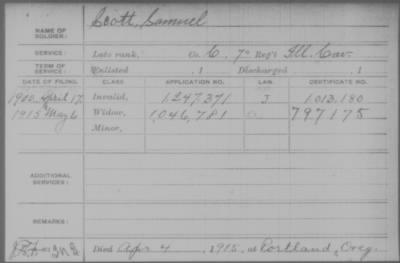 Scott, Samuel
NAME OF SOLDIER:
SERVICE: Late rank, Co. C, 7" Reg't Ill. Cav.
TERM OF SERVICE: Enlisted , 1 Discharged , 1
DATE OF FILING. CLASS APPLICATION NO. LAW. CERTIFICATE NO.
1900, April 17 Invalid, 1247,371 J 1,013,180
1915 May 6 Widow, 1,046,781 797175
Minor,
ADDITIONAL SERVICES:
REMARKS:
Died Apr 4, 1915, at Portland, Oreg.